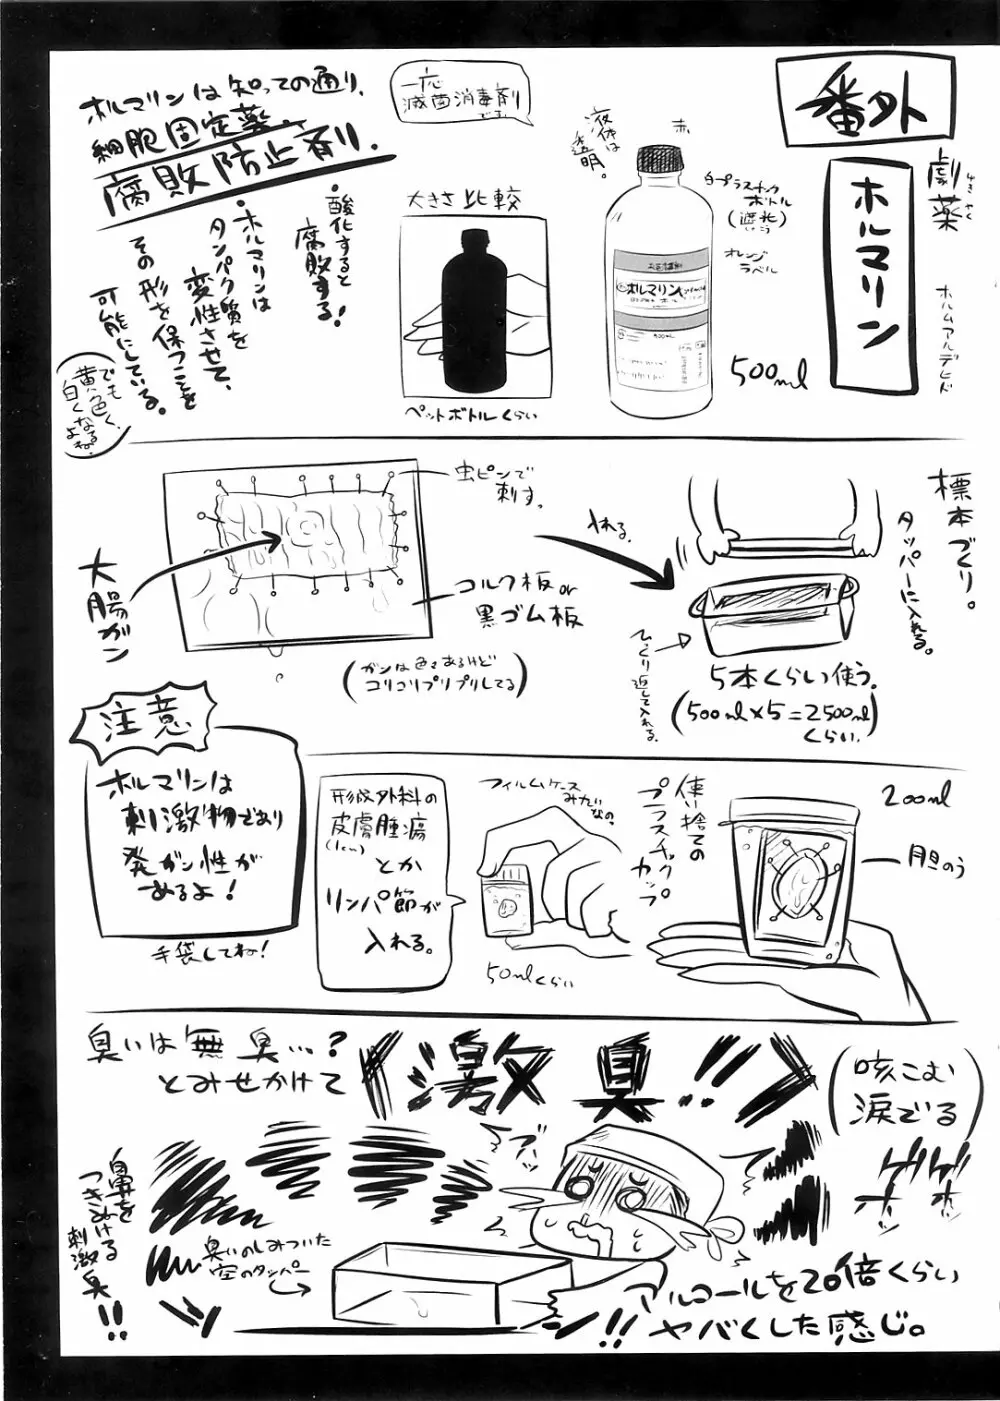 番外
劇薬
げきやく
ホルマリン
ホルムアルデヒド
赤
液体は
透明。
白プラスチック
ボトル
(遮光)
しゃこう
オレンジ
ラベル
ホルマリン
500ml
500ml
一応
滅菌消毒剤
です。
大きさ比較
ペットボトルくらい
ホルマリンは知っての通り、
細胞固定薬、
腐敗防止剤。
・酸化すると
腐敗する!
・ホルマリンは
タンパク質を
変性させて、
その形を保つことを
可能にしている。
でも
黄色く、
白くなる
よね。
標本づくり。
タッパーに入れる。
入れる。
ひっくり返して入れる。
5本くらい使う。
(500ml×5=2500ml)
くらい。
虫ピンで
刺す。
コルク板or
黒ゴム板
大腸ガン
(ガンは色々あるけど
コリコリプリプリしてる)
注意
ホルマリンは
刺激物であり
発ガン性が
あるよ!
手袋してね!
200ml
胆のう
使い捨ての
プラスチック
カップ
フィルムケース
みたいなの。
50mlくらい
形成外科の
皮膚腫瘍
(1cm)
とか
リンパ節が
入れる。
臭いは無臭…?
とみせかけて
《激臭!!》
(咳こむ
涙でる)
ゲホ
ゲホ
鼻を
つきぬける
刺激臭
!!
臭いのしみついた
空のタッパー
ブッ
ツーン!!
アルコールを20倍くらい
ヤバくした感じ。